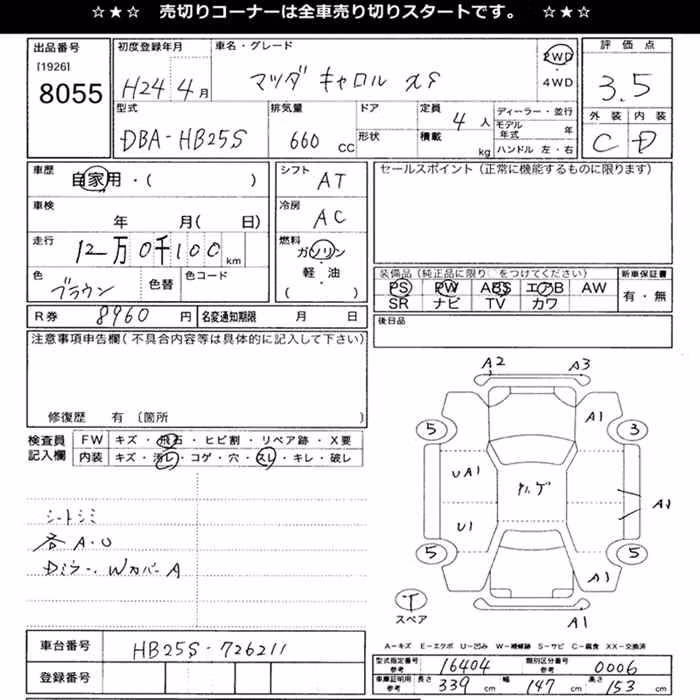 ☆ ★ ☆ 売切りコーナーは全車売り切りスタートです。 ☆ ★ ☆
出品番号
[1926]
8055
初度登録年月
H24 4月
車名・グレード
マツダ キャロル
2WD
・
4WD
評価点
3.5
外装 内装
C D
型式
DBA-HB25S
排気量
660 CC
ドア
形状
定員
4 人
積載
kg
ディーラー・並行
モデル年式 年
ハンドル 左・右
車歴
自家用・( )
車検
年 月( 日)
走行
12万0千100 km
色
ブラウン
色替
色コード
シフト
AT
冷房
AC
燃料
ガソリン
・
軽・油
( )
セールスポイント(正常に機能するものに限ります)
装備品(純正品に限り をつけてください)
PS PW ABS エアB AW
SR ナビ TV カワ
新車保証書
有・無
R券 8960 円
名変通知期限 月 日
後日品
注意事項申告欄(不具合内容等は具体的に記入して下さい)
修復歴 有 〔箇所
検査員
記入欄
FW キズ・飛石・ヒビ割・リペア跡・X要
内装 キズ・汚レ・コゲ・穴・スレ・キレ・破レ
シートシミ
各A・U
Dミラー、Wカバー A
A2 A3
A1
5 3
UA1
U1
A1
5 5
A1
A1
T
スペア
A-キズ E-エクボ U-凹み W-補修跡 S-サビ C-腐食 XX-交換済
車台番号
HB25S-726211
登録番号
型式指定番号 参考 16404
類別区分番号 参考 0006
車庫証明用 参考 長さ 339 cm 幅 147 cm 高さ 153 cm